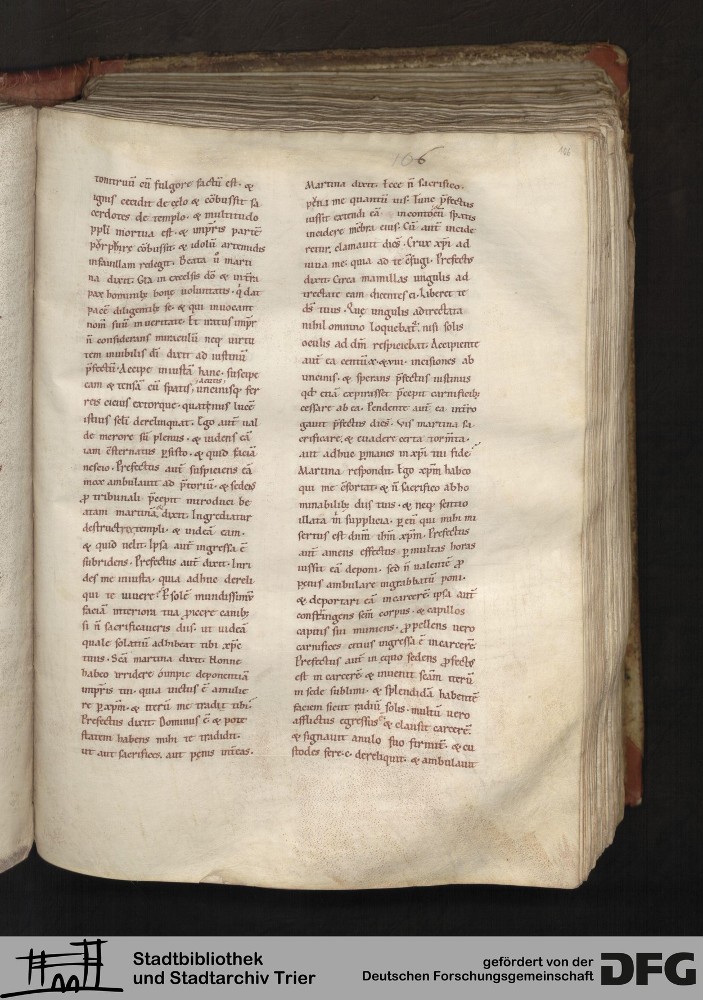 106
166
tonitruũ cũ fulgore factũ est. &
ignis cecidit de cęlo & cõbussit sa
cerdotes de templo. & multitudo
ppli mortua est. & impr̃is partẽ
cõbussit. & idolũ artemidis
infavillam redegit. Beata ũ marti
na dixit. Gĩa in excelsis dõ & int̃ra
pax hominib; bonę voluntatis. q̃ dat
pacẽ diligentib; se. & qui invocant
nom̃ suũ in veritate. Et iratus imp̃r
ñ considerans miraculũ neq; virtu
tem invibilis dĩ dixit ad iustinũ
p̃fectũ. Accipe iniustã hanc. suscipe
eam & tensã cũ spatis, acutis, uncinisq; fer
reis eicius extorque. quatenus lucẽ
istius sclĩ derelinquat. Ego aut̃ ual
de merore sũ plenus. & uidens eã
iam &̃sternatus p̱sisto. & quid faciã
nescio. Prefectus aut̃ suspiciens eã
mox ambulauit ad p̃toriũ. & sedens
ꝓ tribunali p̃cepit introduci be
atam martinã. & dixit. Ingrediatur
destructrix templi. & uideã eam.
& quid uelit. Ipsa aut̃ ingressa ẽ
subridens. Prefectus aut̃ dixit. Inri
des me iniusta. quia adhuc dereli
qui te uiuere? P̱ solẽ mundissimũ
faciã interiora tua ꝓicere canib;
si ñ sacrificaueris diis. ut uideã
quale solatiũ adhibeat tibi xp̃c
tuus. Scã martina dixit. Nonne
habeo irridere õnipẽ deponentiã
imp̃ris tui. quia uictus ẽ amulie
re p̱ xp̃m. & iterũ me tradit tibi.
Prefectus dixit. Dominus ẽ & pote
statem habens mihi te tradidit.
ut aut sacrifices. aut pẹnis inteas.
Martina dixit. Ecce ñ sacrifico.
pẹni me quantũ uis. Tunc p̃fectus
iussit extendi eã & incontoẽti spatis
incidere mẽbra eius. Cũ aut̃ incide
retur, clamauit dicẽs. Crux xp̃i ad
iuua me. quia ad te &̃fugi. Prefectꝰ
dixit. Circa mamillas ungulis ad
trectate eam dicentes ei. Liberet te
d̃s tuus. Quę ungulis adtrectata
nihil omnino loquebat̃. nisi solis
oculis ad dñm respiciebat. Accipiente
aut̃ ea centũ x. & viii. incisiones ab
uncinis. & sperans p̃fectus iustinus
qd̃ etiã expirasset p̃cepit carnificib;
cessare ab ea. Pendente aut̃ ea int̃ro
gauit p̃fectus dicẽs. Vis martina sa
crificare. & euadere certa torm̃ta.
aut adhuc p̱manes in xp̃i tui fide?
Martina respondit. Ego xp̃m habeo
qui me &̃fortat. & ñ sacrifico abho
minabilib; diis tuis. & neq; sentio
illata m̃ supplicia. p̱ eũ qui mihi mi
sertus est dnm̃ ihm̃ xp̃m. Prefectus
aut̃ amens effectus p̱ multas horas
iussit eã deponi. sed ñ ualentẽ ꝓ
p̱xius ambulare ingrabbatũ poni.
& deportari eã incarcerẽ. ipsa aut̃
confr̃ingens sem̃ corpus. & capillos
capitis sui muniens. ꝓpellens uero
carnifices citius ingressa ẽ incarcerẽ.
Prefectus aut̃ in equo sedens ꝓfectꝰ
est in carcerẽ & inuenit scam̃ iterũ
in sede sublimi. & splendidã habentẽ
faciem sicut radiũ solis. multũ uero
afflictus egressus ẽ & clausit carcerẽ.
& signauit anulo suo firmit̃. & cu
stodes fere. c. dereliquit. & ambulauit
Stadtbibliothek
und Stadtarchiv Trier
gefördert von der
Deutschen Forschungsgemeinschaft
DFG